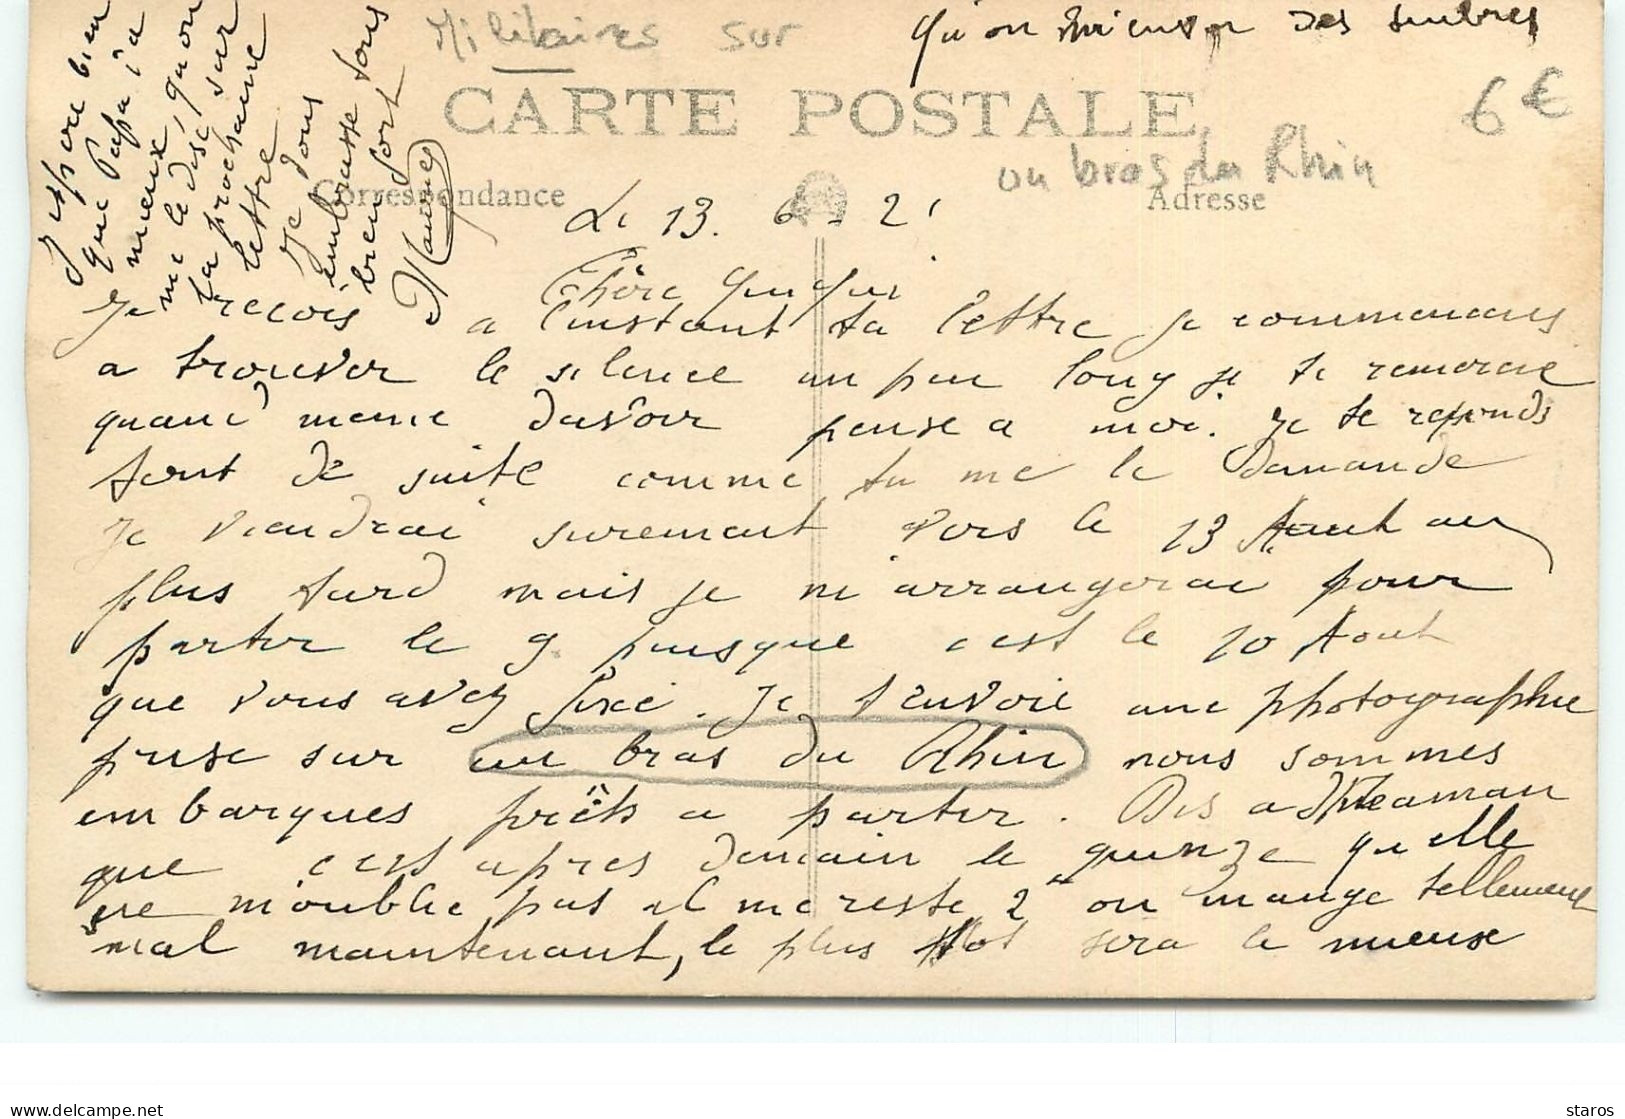 Militaires sur
CARTE POSTALE
un bras du Rhin
6 €
Correspondance
Adresse
Le 13. 6 - 21
Chère Quiqui
Je recois a l'instant ta lettre je commencais
a trouver le silence un peu long je te remercie
quand meme davoir pense a moi. Je te reponds
tout de suite comme tu me le demande
Je viendrai surement vers le 13 Aout ou
plus tard mais je m'arrangerai pour
partir le 9. puisque c'est le 10 Aout
que vous avez fixé. Je t'envoie une photographie
prise sur un bras du Rhin nous sommes
embarques prêts a partir. Dis a Meaman
que c'est apres demain le quinze qu'elle
ne m'oublie pas il me reste 2 on mange tellement
mal maintenant, le plus tot sera le mieux
qu'on m'envoi des timbres
J'espere bien
que Papa va
mieux, qu'on
me le dise sur
la prochaine
lettre
Je vous
embrasse tous
bien fort
Maurice
staros